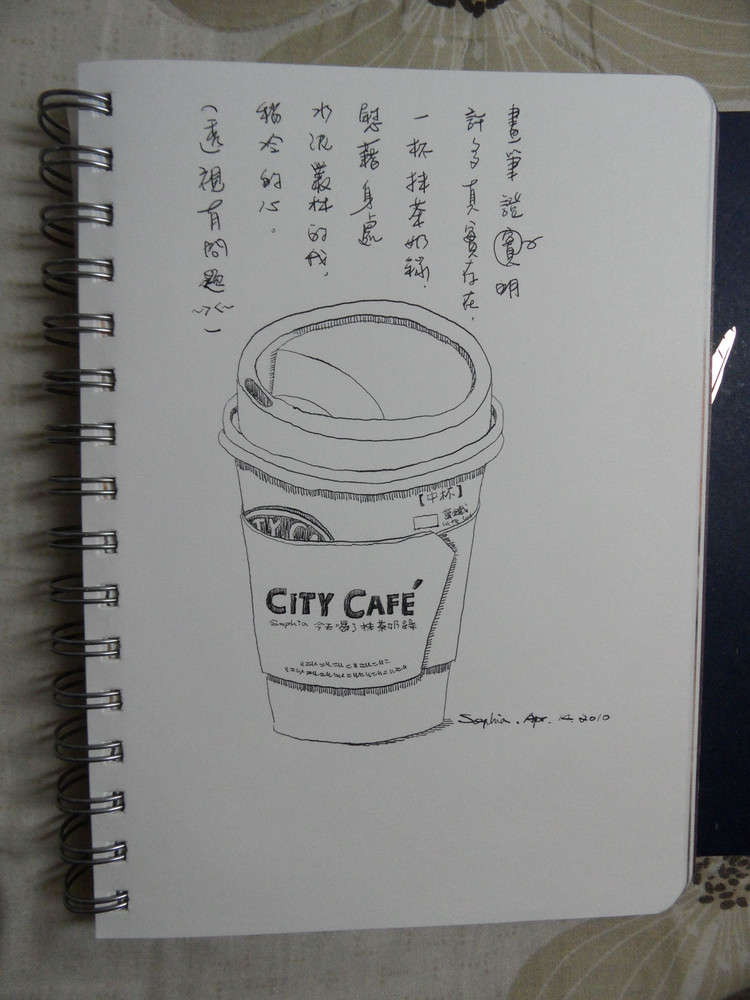 畫筆證實明
許多真實存在，
一杯抹茶奶綠，
慰藉身處
水泥叢林的我，
稍冷的心。
（透視有問題><）
【中杯】
CITY CAFÉ
Sophia 今天喝了抹茶奶綠
Sophia. Apr. 14. 2010